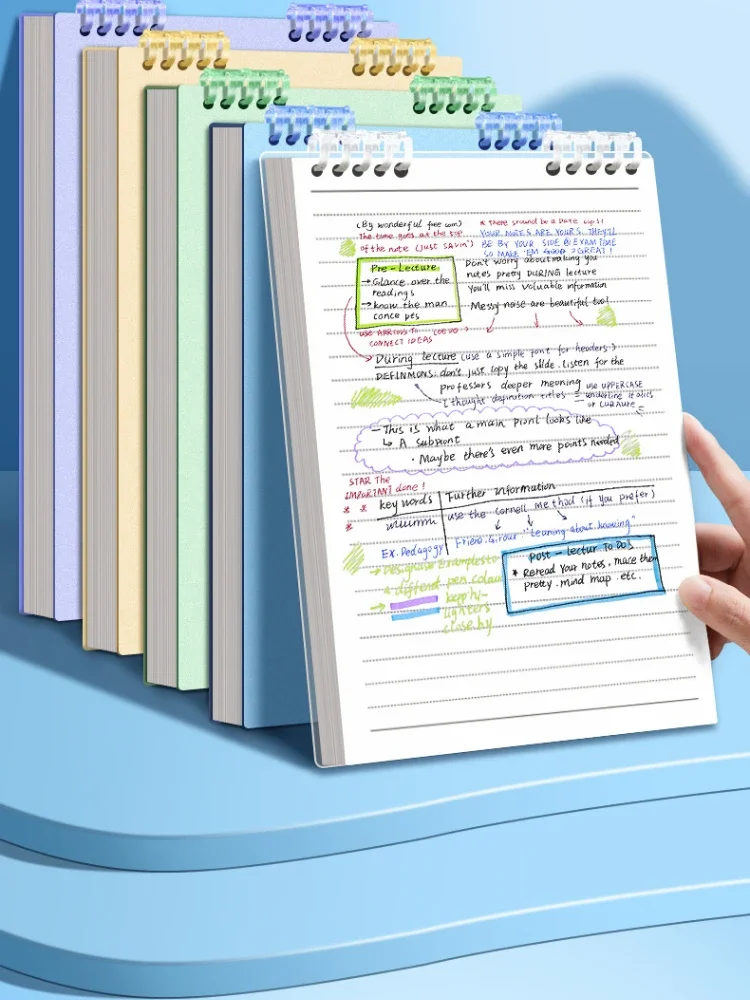 (By wonderful free com)
The time goes at the top
of the note (just SAyin')
* There should be a Date
YOUR NOTES ARE YOURS. THEY'LL
BE BY YOUR SIDE @ EXAM TIME
SO MAKE 'EM GOOD >GREAT!
Pre - Lecture
→ Glance over the
readings
→ know the man
conce pts
Don't worry about making you
notes pretty DURING lecture
You'll miss valuable information
Messy noise are beautiful too!
CONNECT IDEAS
During lecture (use a simple font for headers.)
DEFINMONS: don't just copy the slide. Listen for the
professors deeper meaning
I thought depinution titles =
use UPPERCASE
underline
- This is what a main piont looks like
↳ A subpiont
• Maybe there's even more points needed
STAR The
IMPORTANT done!
* *
*
key words
Further information
use the cornell me thod (if you prefer)
Ex. Pedagogy
"Learning about knowing"
→ Designise Examplesto
a diffent pen colour
→ keep hi-
lighters
close by
Post - lectur To Do's
* Reread Your notes. mace them
pretty. mind map. etc.